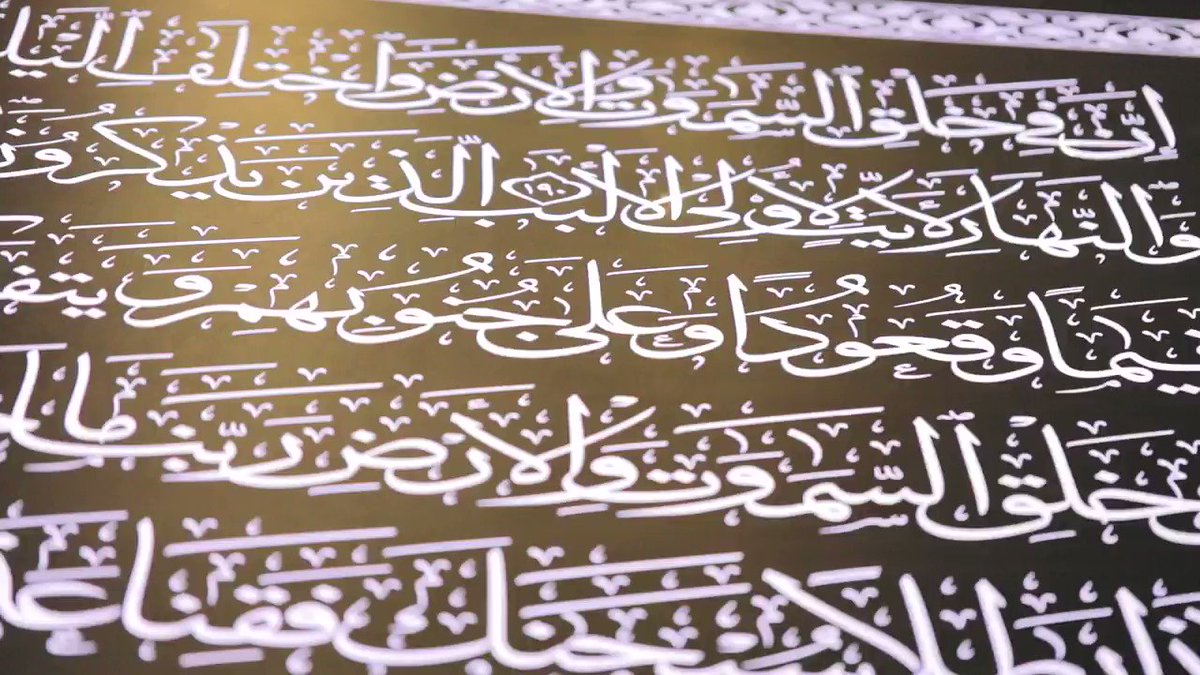 اِنَّ فِيْ خَلْقِ السَّمٰوٰتِ وَالْاَرْضِ وَاخْتِلَافِ الَّيْلِ
وَالنَّهَارِ لَاٰيٰتٍ لِّاُولِى الْاَلْبَابِ ١٩٠ الَّذِيْنَ يَذْكُرُوْنَ
قِيَامًا وَّقُعُوْدًا وَّعَلٰى جُنُوْبِهِمْ وَيَتَفَ
خَلْقِ السَّمٰوٰتِ وَالْاَرْضِ رَبَّنَا مَا
بَاطِلًا سُبْحٰنَكَ فَقِنَا